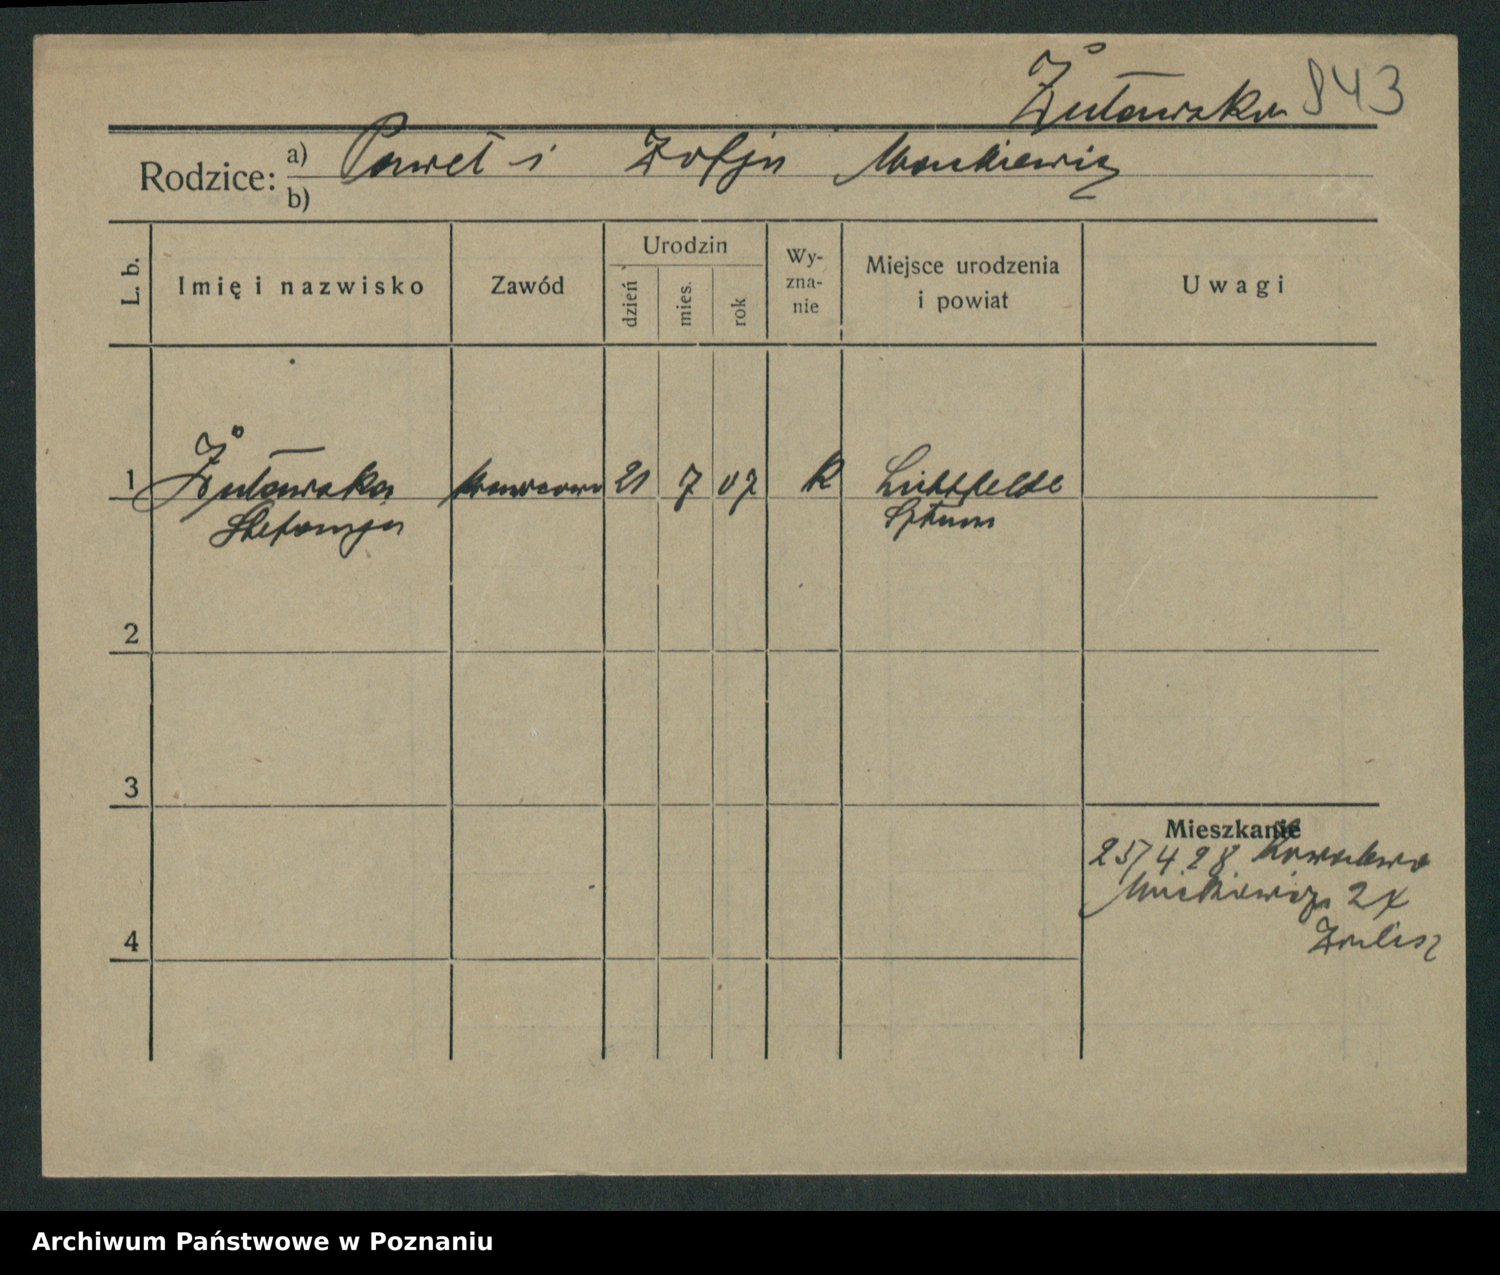 Żuławska 843
Rodzice: a) Paweł i Zofja Mackiewicz
b)
L. b.
Imię i nazwisko
Zawód
Urodzin
dzień
mies.
rok
Wy-
zna-
nie
Miejsce urodzenia
i powiat
Uwagi
1 Żuławska krawcowa 21 7 07 R Lichtfelde
Stefanja Sztum
2
3
Mieszkanie
25/4 28
2
4
Archiwum Państwowe w Poznaniu